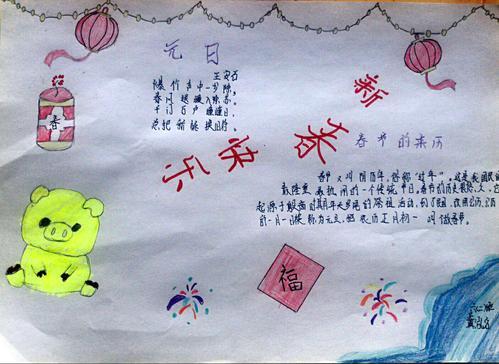 元日
王安石
爆竹声中一岁除，
春风送暖入屠苏。
千门万户曈曈日，
总把新桃换旧符。
新春快乐
春
春节的来历
春节又叫阴历年，俗称"过年"，这是我国民
最隆重 最热闹的一个传统节日。春节的历史
起源于殷商时期年头岁尾的祭祖活动。
的一月一日 称为元旦，把农历正月初一叫做春节。
福